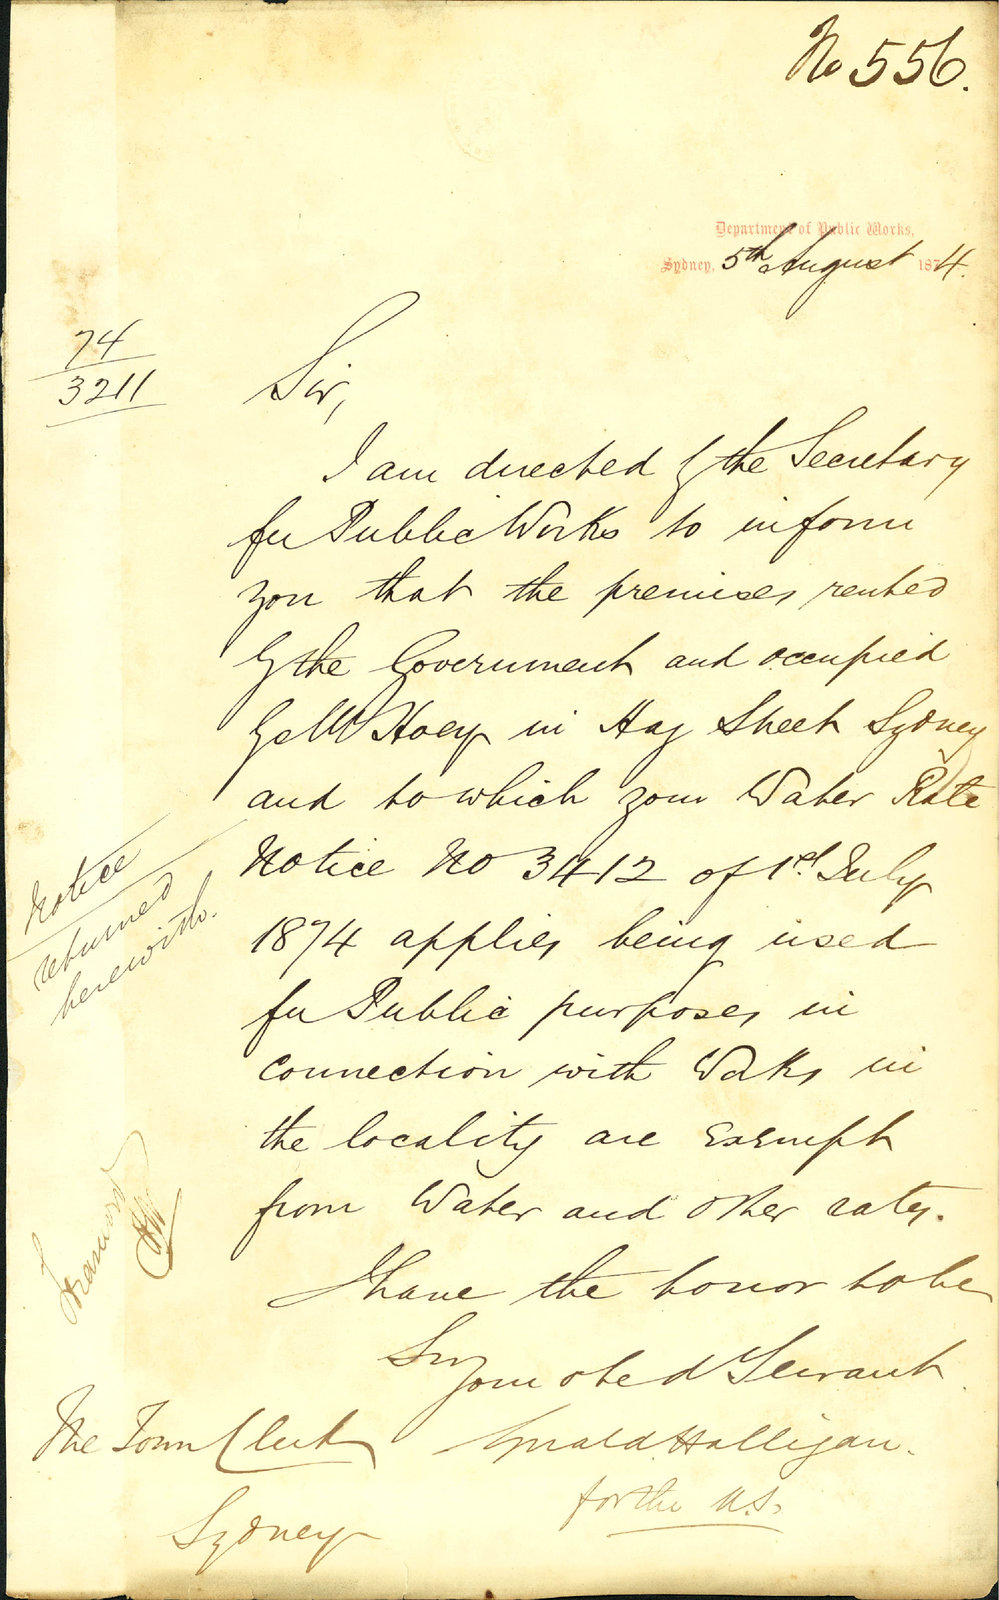 No 556.
Department of Public Works,
Sydney, 5th August 1874.
74
3211
Sir,
I am directed by the Secretary
for Public Works to inform
you that the premises rented
by the Government and occupied
by Mr Hoey in Hay Street Sydney
and to which your Water Rate
Notice No 3412 of 1st July
1874 applies being used
for Public purposes in
connection with Works in
the locality are exempt
from Water and other rates.
Notice
returned
herewith.
I have the honor to be
Sir
Your obed Servant
Gerald Halligan.
for the U.S.
The Town Clerk
Sydney